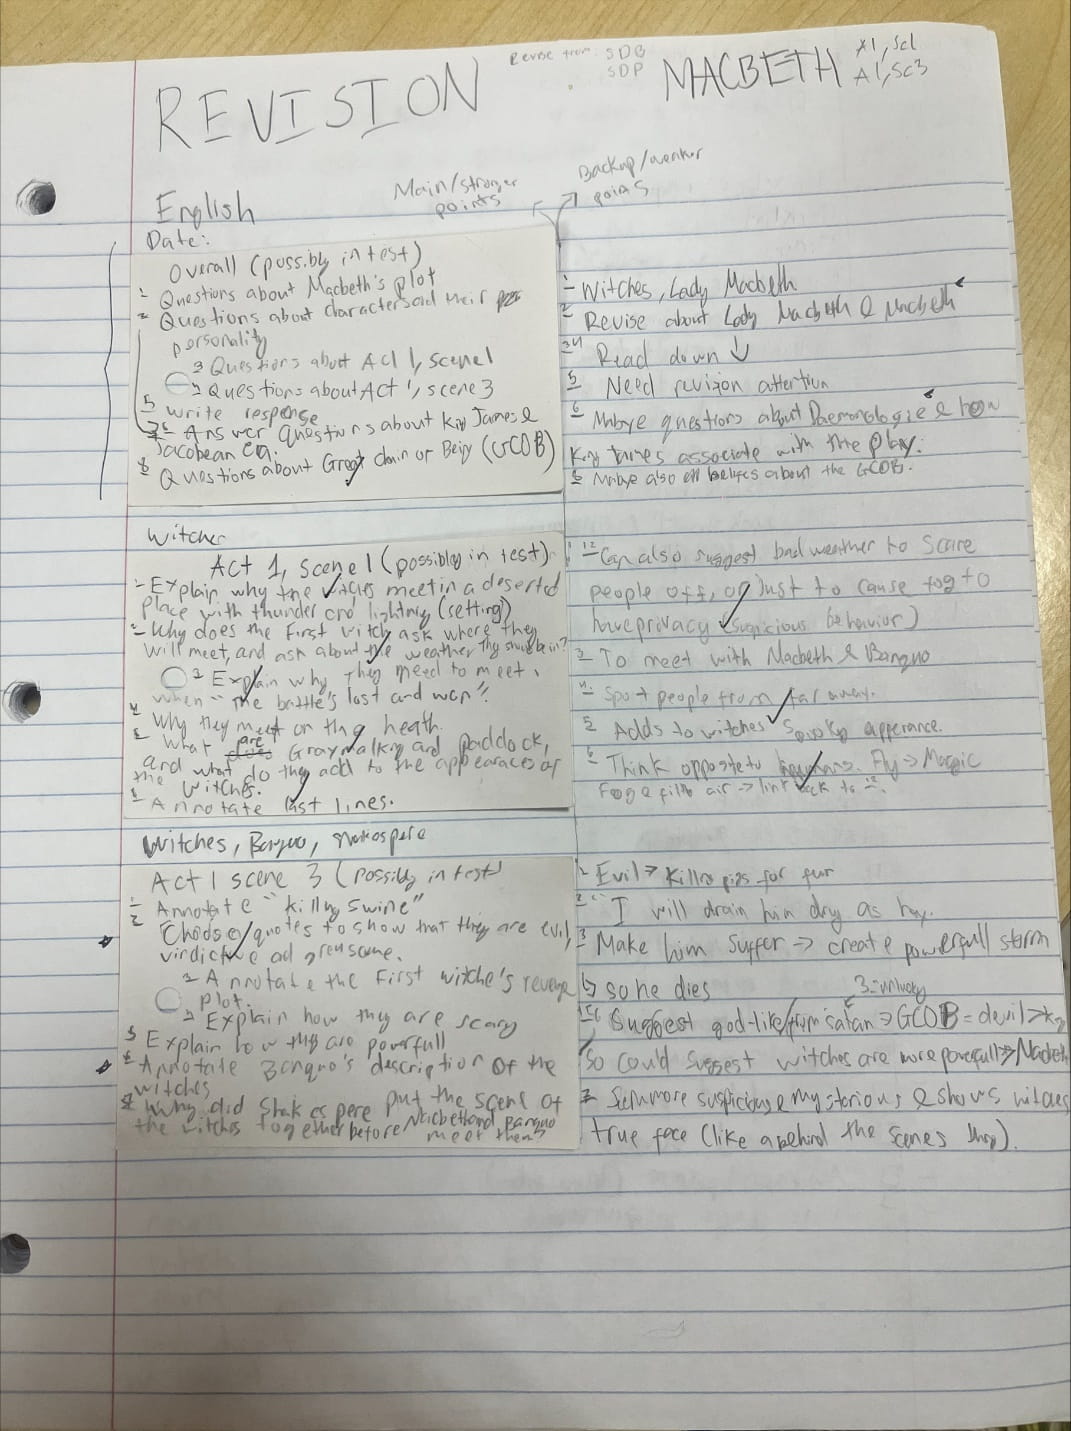 Revise from: SDB
SDP
REVISION
MACBETH
A1, Sc1
A1, Sc3
Main/stronger
points
Backup/weaker
points
English
Date:
Overall (possibly in test)
1 Questions about Macbeth's plot
2 Questions about characters and their
personality
3 Questions about Act 1, scene 1
Questions about Act 1, scene 3
5 Write response
Answer Questions about King James &
Jacobean era.
Questions about Great chain of Being (GCOB)
1 Witches, Lady Macbeth
2 Revise about Lady Macbeth & Macbeth
34 Read down ↓
5 Need revizion attention
6 Mabye questions about Daemonologie & how
King James associate with the play.
Mabye also about the GCOB.
Witches
Act 1, Scene 1 (possibly in test)
1 Explain why the witches meet in a deserted
place with thunder and lightning (setting)
2 Why does the First witch ask where they
will meet, and ask about the weather in?
3 Explain why They need to meet
when "The battle's lost and won".
4 Why they meet on the heath.
5 What are Graymalkin and Paddock,
and what do they add to the appearaces of
the witches.
6 Annotate last lines.
12 Can also suggest bad weather to scare
people off, or just to cause fog to
have privacy (suspicious behavior)
3 To meet with Macbeth & Banquo
4 Spot people from far away.
5 Adds to witches spooky apperance.
6 Think opposite to humans. Fly → Magic
Fog & filth air → link back to 12.
Witches, Banquo, Shakespere
Act 1 scene 3 (Possibly in test)
1 Annotate "killing swine"
2 Choose quotes to show that they are evil,
vindictive and gruesome.
3 Annotate the First witche's revenge
plot.
Explain how they are scary
5 Explain how they are powerfull
6 Annotate Banquo's description of the
witches
7 Why did Shakespere put the scene of
the witches together before Macbeth and Banquo
meet them
1 Evil → Killing pigs for fun
2 "I will drain him dry as hay.
3 Make him suffer → create powerfull storm
↳ so he dies
3 = unlucky
Suggest god-like/from satan → GCOB = devil >
so could suggest witches are more powerfull → Macbeth
7 Seem more suspicious & mysterious & shows witches
true face (like a behind the scenes